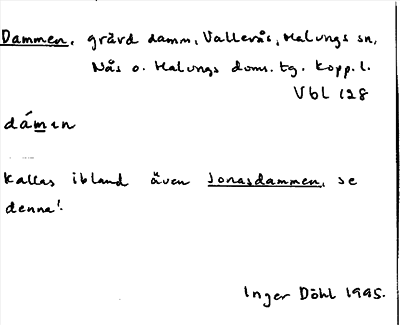 Dammen, grävd damm, Vallerås, Malungs sn,
Nås o. Malungs doms. tg. Kopp. l.
Vbl 128
dámen
Kallas ibland även Jonasdammen, se
denna!
Inger Döhl 1995.